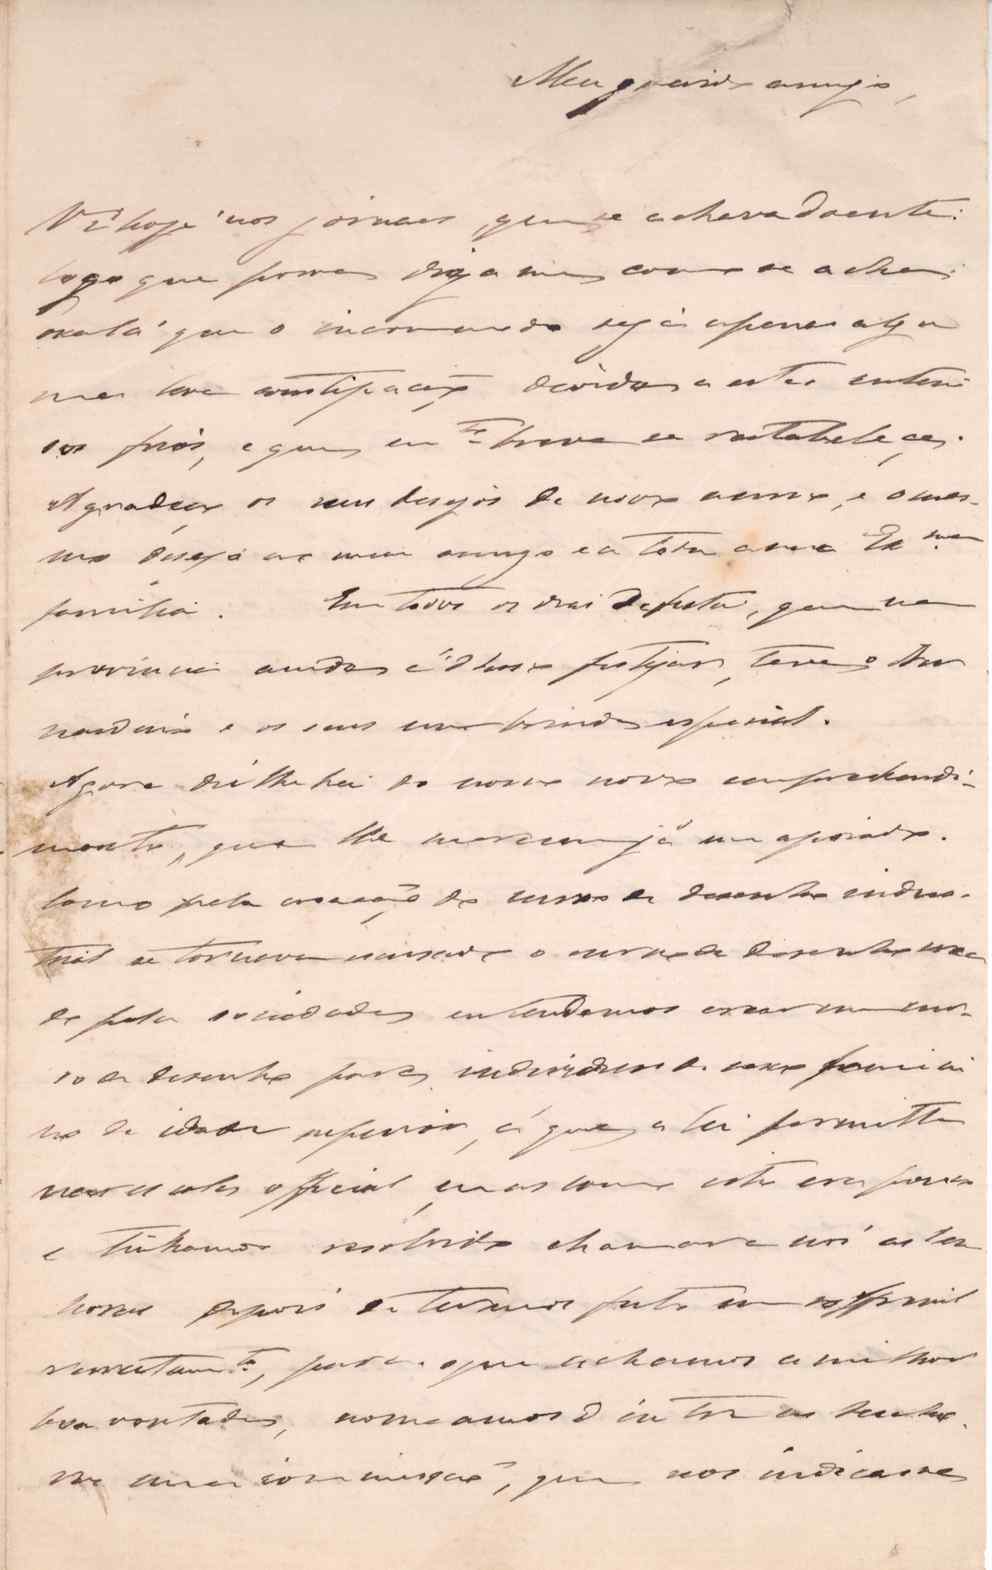 Meu querido amigo,
Vi hoje nos jornaes que se achava doente:
logo que possa diga-me como se acha:
oxalá que o incommodo seja apenas algu
ma leve constipação devida a estes inten
sos frios, e que em bre se restabeleça.
Agradeço os seus desejos de novo anno, e o mes-
mo desejo ao meu amigo e a toda a sua Ex.ma
familia. Em todos os dias de festa, que na
provincia ainda é d'uso festejar, teve o
e os seus um brinde especial.
Agora dir-lhe-hei do nosso novo emprehendi-
mento, que lhe mereceu já um apoiado.
Como pela creação do curso de desenho indus-
trial se tornava escusado o curso de desenho crea
do pela sociedade, entendemos crear um cur-
so de desenho para individuos do sexo femini
no de idade superior, á que a lei permitte
na escola official, mas como isto era pouco
e tinhamos resolvido chamar a nós as se
nhoras depois de termos feito um
, para o que achamos a melhor
boa vontade, nomeamos d'entre as senho-
ras uma commissão, que nos indicasse